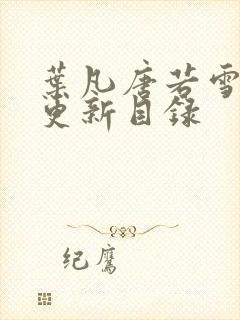 葉凡唐若雪
更新目錄
纪鹰